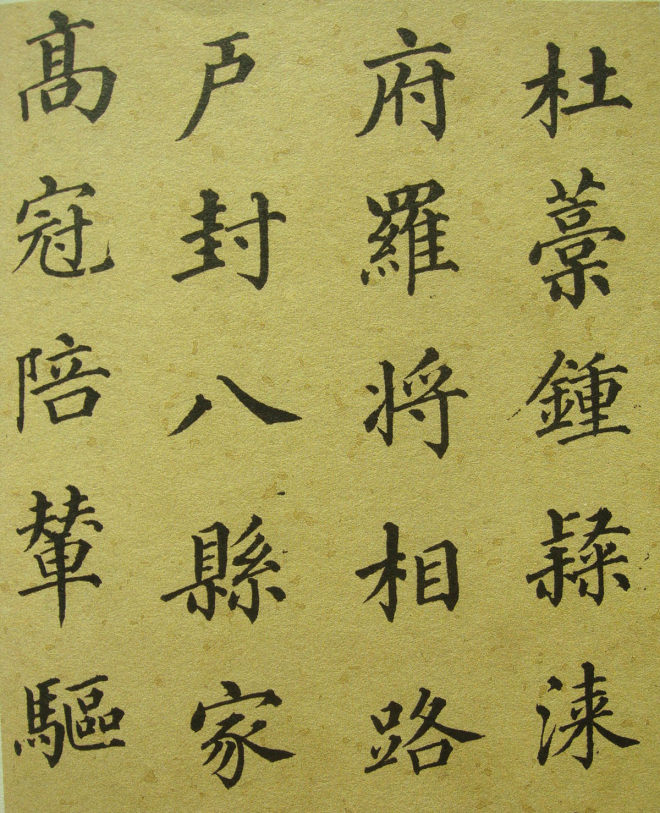 杜藁鍾隸漆
府羅将相路
戶封八縣家
髙冠陪輦驅